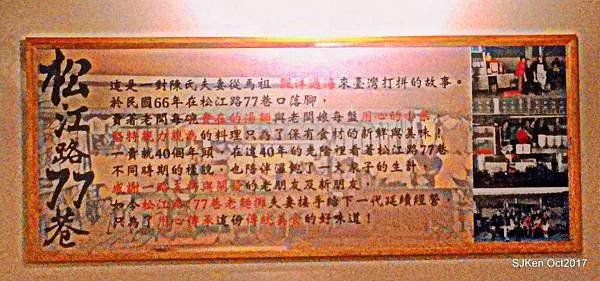 松江路77巷
這是一對陳氏夫妻從馬祖 飄洋過海來臺灣打拼的故事。
於民國66年在松江路77巷口落腳,
賣著老闆每碗實在的海麵與老闆娘每盤用心的小菜
堅持親力親為的料理只為了保有食材的新鮮與美味!
一賣就40個年頭,在這40年的光陰裡看著松江路77巷
不同時期的樣貌,也陪伴溫飽了一大家子的生計,
感謝一路支持與關愛的老朋友及新朋友,
如今松江路77巷老麵攤夫妻接手給下一代延續經營,
只為了用心傳承這份傳統美食的好味道!
SJKen Oct2017